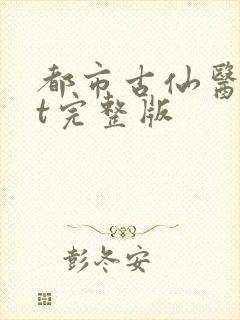 都市古仙醫
t完整版
彭冬安